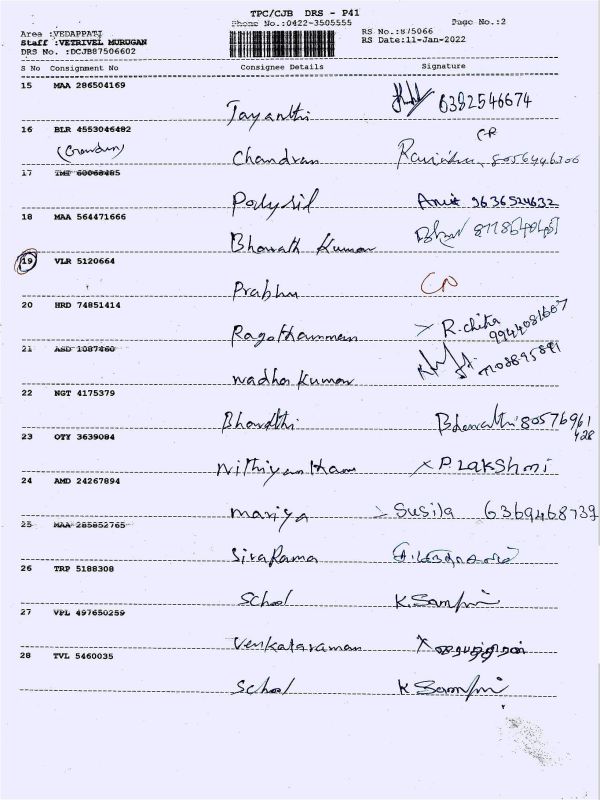 TPC/CJB DRS - P41
Phone No.:0422-3505555 Page No.:2
Area :VEDAPPATI RS No.:875066
Staff :VETRIVEL MURUGAN RS Date:11-Jan-2022
DRS No. :DCJB87506602
S No Consignment No Consignee Details Signature
15 MAA 286504169
Jayanthi 6382546674
16 BLR 4553046482
Chandran 8056446306
17 60068485
Polysil Amit 9636524632
18 MAA 564471666
Bharath Kumar
19 VLR 5120664
Prabhu
20 HRD 74851414
Ragothamman R.chitra
9944081607
21 ASD 1087460
Madhan Kumar
22 NGT 4175379
Bharathi Bharathi 80576961
428
23 OTY 3639084
Nithiyantham X P.Lakshmi
24 AMD 24267894
mariya Susila 6369468739
25 MAA 285852765
SivaRama
26 TRP 5188308
School
27 VPL 497650259
Venkataraman
28 TVL 5460035
School